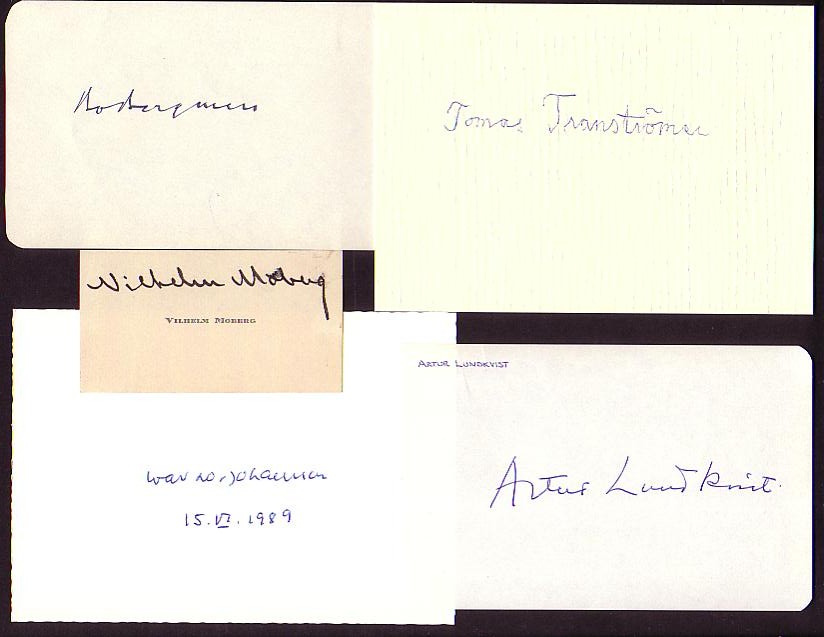 Bo Bergman
Tomas Tranströmer
Vilhelm Moberg
VILHELM MOBERG
ARTUR LUNDKVIST
Artur Lundkvist
15.VI.1989